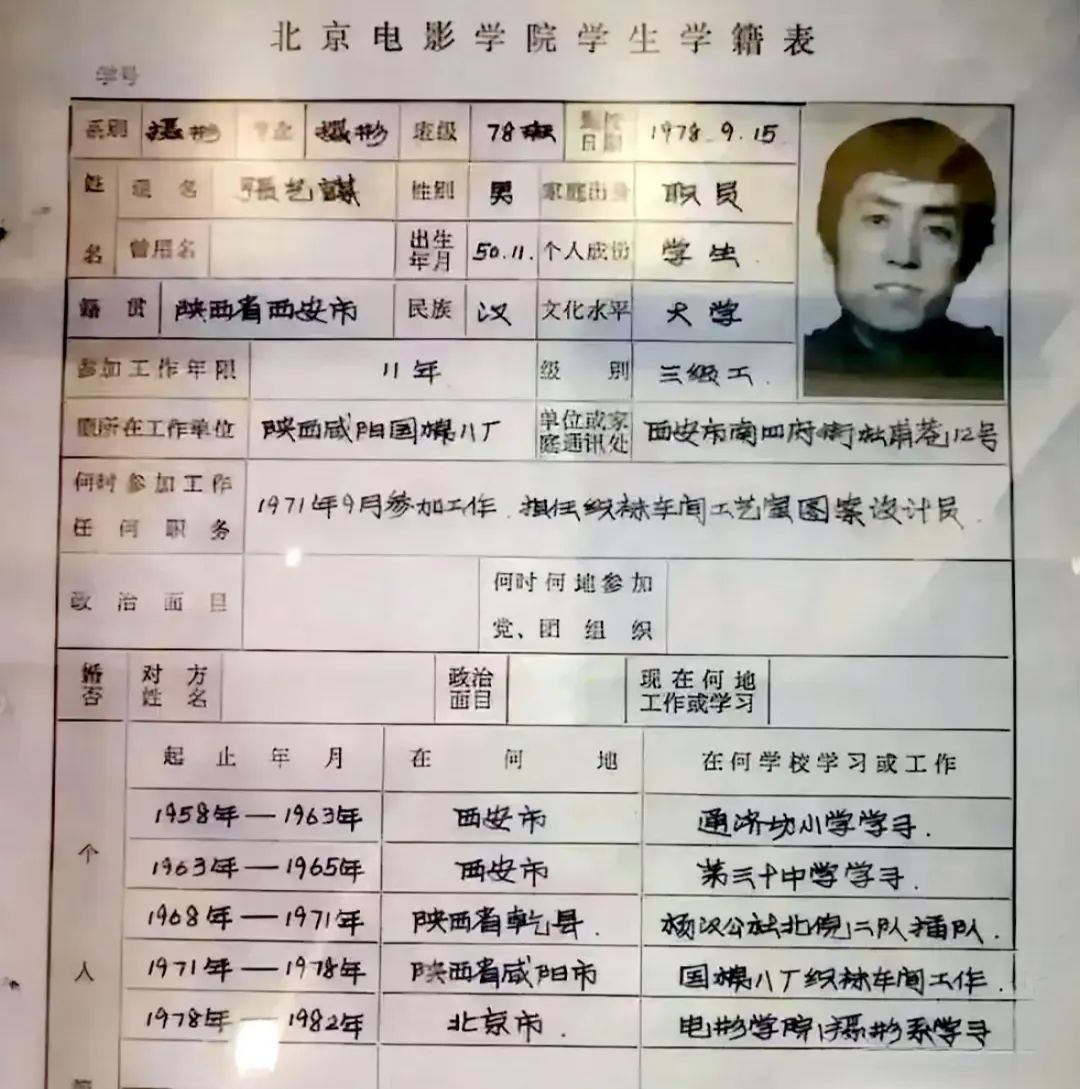 北京电影学院学生学籍表
学号
系别 摄影 专业 摄影 班级 78班 到校日期 1978.9.15
姓名 通名 張艺謀 性别 男 家庭出身 职员
曾用名 出生年月 50.11. 个人成份 学生
籍贯 陕西省西安市 民族 汉 文化水平 大学
参加工作年限 11年 级别 三级工.
原所在工作单位 陕西咸阳国棉八厂 单位或家庭通讯处 西安市南四府街杜甫巷12号
何时参加工作任何职务 1971年9月参加工作.担任织袜车间工艺室图案设计员.
政治面目 何时何地参加党、团组织
婚否 对方姓名 政治面目 现在何地工作或学习
个人
起止年月 在何地 在何学校学习或工作
1958年—1963年 西安市 通济坊小学学习.
1963年—1965年 西安市 第三十中学学习.
1968年—1971年 陕西省乾县. 杨汉公社北倪二队插队.
1971年—1978年 陕西省咸阳市 国棉八厂织袜车间工作.
1978年—1982年 北京市. 电影学院摄影系学习